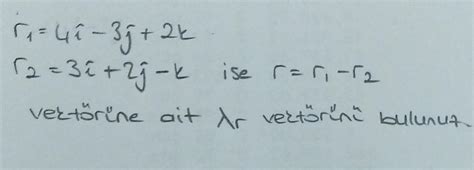 r₁ = 4î - 3ĵ + 2k
r₂ = 3î + 2ĵ - k ise r = r₁ - r₂
vektörüne ait λr vektörünü bulunuz.